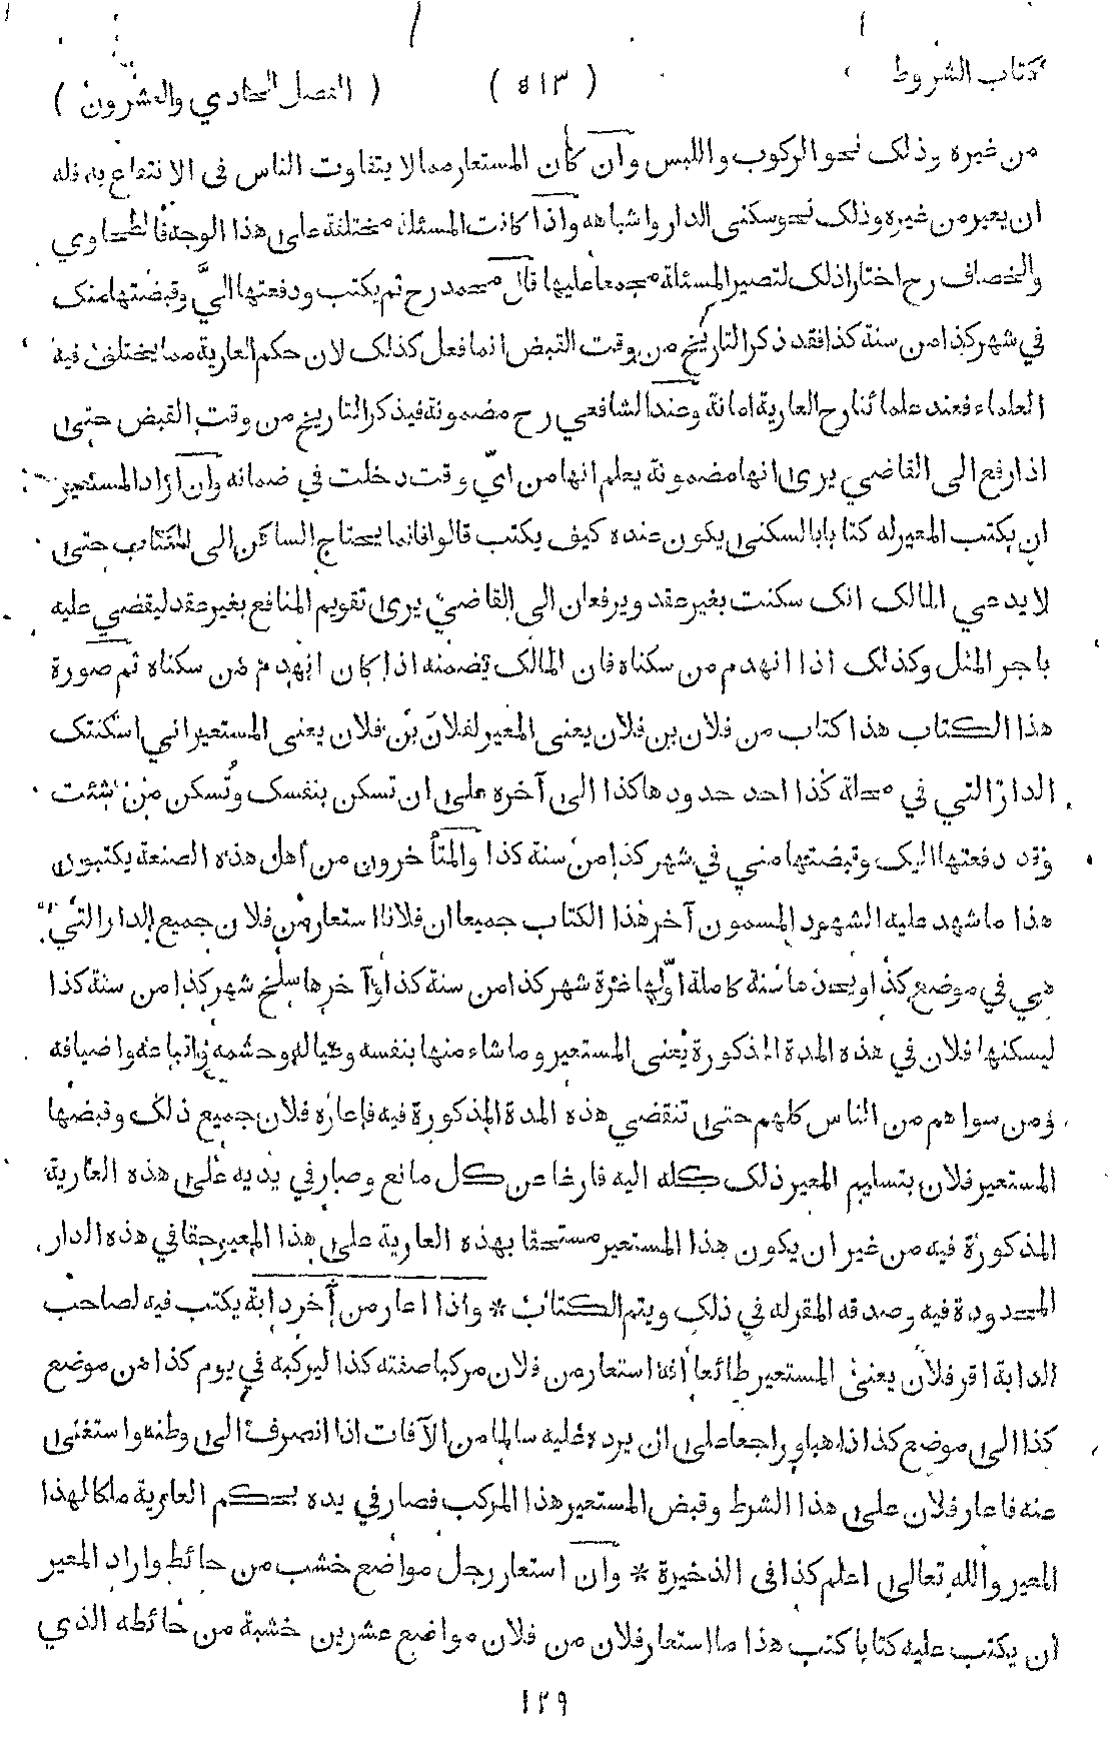 كتاب الشروط ( ٥١٣ ) ( الفصل الحادي والعشرون )
من غيره وذلك نحو الركوب واللبس وان كان المستعار مما لا يتفاوت الناس فى الانتفاع به فله
ان يعير من غيره وذلك نحو سكنى الدار واشباهه واذا كانت المسئلة مختلفة على هذا الوجه فالطحاوي
والخصاف رح اختارا ذلك لتصير المسئلة مجمعا عليها قال محمد رح ثم يكتب ودفعتها اليَّ وقبضتها منك
في شهر كذا من سنة كذا فقد ذكر التاريخ من وقت القبض انما فعل كذلك لان حكم العارية مما يختلف فيه
العلماء فعند علمائنا رح العارية امانة وعند الشافعي رح مضمونة فيذكر التاريخ من وقت القبض حتى
اذا رفع الى القاضي يرى انها مضمونة يعلم انها من ايّ وقت دخلت في ضمانه وان اراد المستعير
ان يكتب المعير له كتابا بالسكنى يكون عنده كيف يكتب قالوا فانما يحتاج الساكن الى الكتاب حتى
لا يدعي المالك انك سكنت بغير عقد ويرفعان الى القاضي يرى تقويم المنافع بغير عقد ليقضي عليه
باجر المثل وكذلك اذا انهدم من سكناه فان المالك يضمنه اذا كان انهدم من سكناه ثم صورة
هذا الكتاب هذا كتاب من فلان بن فلان يعنى المعير لفلان بن فلان يعنى المستعير اني اسكنتك
الدار التي في محلة كذا احد حدودها كذا الى آخره على ان تسكن بنفسك وتُسكن من شئت
وقد دفعتها اليك وقبضتها مني في شهر كذا من سنة كذا والمتأخرون من اهل هذه الصنعة يكتبون
هذا ما شهد عليه الشهود المسمون آخر هذا الكتاب جميعا ان فلانا استعار من فلان جميع الدار التي
هي في موضع كذا وبحذها سنة كاملة اوّلها غرة شهر كذا من سنة كذا وآخرها سلخ شهر كذا من سنة كذا
ليسكنها فلان في هذه المدة المذكورة يعنى المستعير وما شاء منها بنفسه وعياله وحشمه واتباعه واضيافه
ومن سواهم من الناس كلهم حتى تنقضي هذه المدة المذكورة فيه فاعاره فلان جميع ذلك وقبضها
المستعير فلان بتسليم المعير ذلك كله اليه فارغا عن كل مانع وصار في يديه على هذه العارية
المذكورة فيه من غير ان يكون هذا المستعير مستحقا بهذه العارية على هذا المعير حقا في هذه الدار
المحدودة فيه وصدقه المقر له في ذلك ويتم الكتاب * واذا اعار من آخر دابة يكتب فيه لصاحب
الدابة اقر فلان يعنى المستعير طائعا انه استعار من فلان مركبا صفته كذا ليركبه في يوم كذا من موضع
كذا الى موضع كذا ذاهبا وراجعا على ان يرده عليه سالما من الآفات اذا انصرف الى وطنه واستغنى
عنه فاعار فلان على هذا الشرط وقبض المستعير هذا المركب فصار في يده بحكم العارية ملكا لهذا
المعير والله تعالى اعلم كذا فى الذخيرة * وان استعار رجل مواضع خشب من حائط واراد المعير
ان يكتب عليه كتابا كتب هذا ما استعار فلان من فلان مواضع عشرين خشبة من حائطه الذي
١٢٩